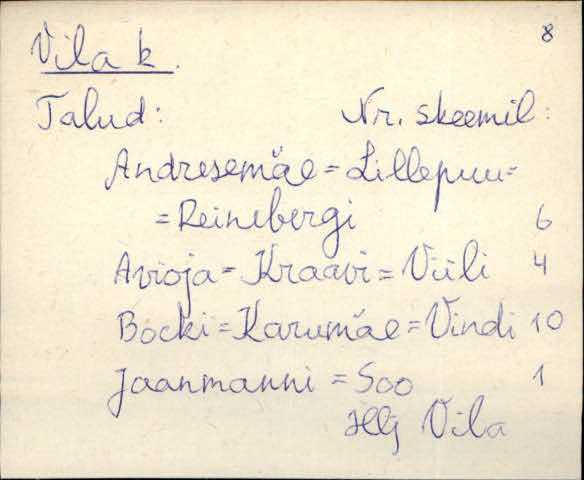 Vila k.
8
Talud: Nr. skeemil:
Andresemäe = Lillepuu =
= Reinebergi 6
Avioja = Kraavi = Viili 4
Bocki = Karumäe = Vindi 10
Jaanmanni = Soo 1
Hlj Vila